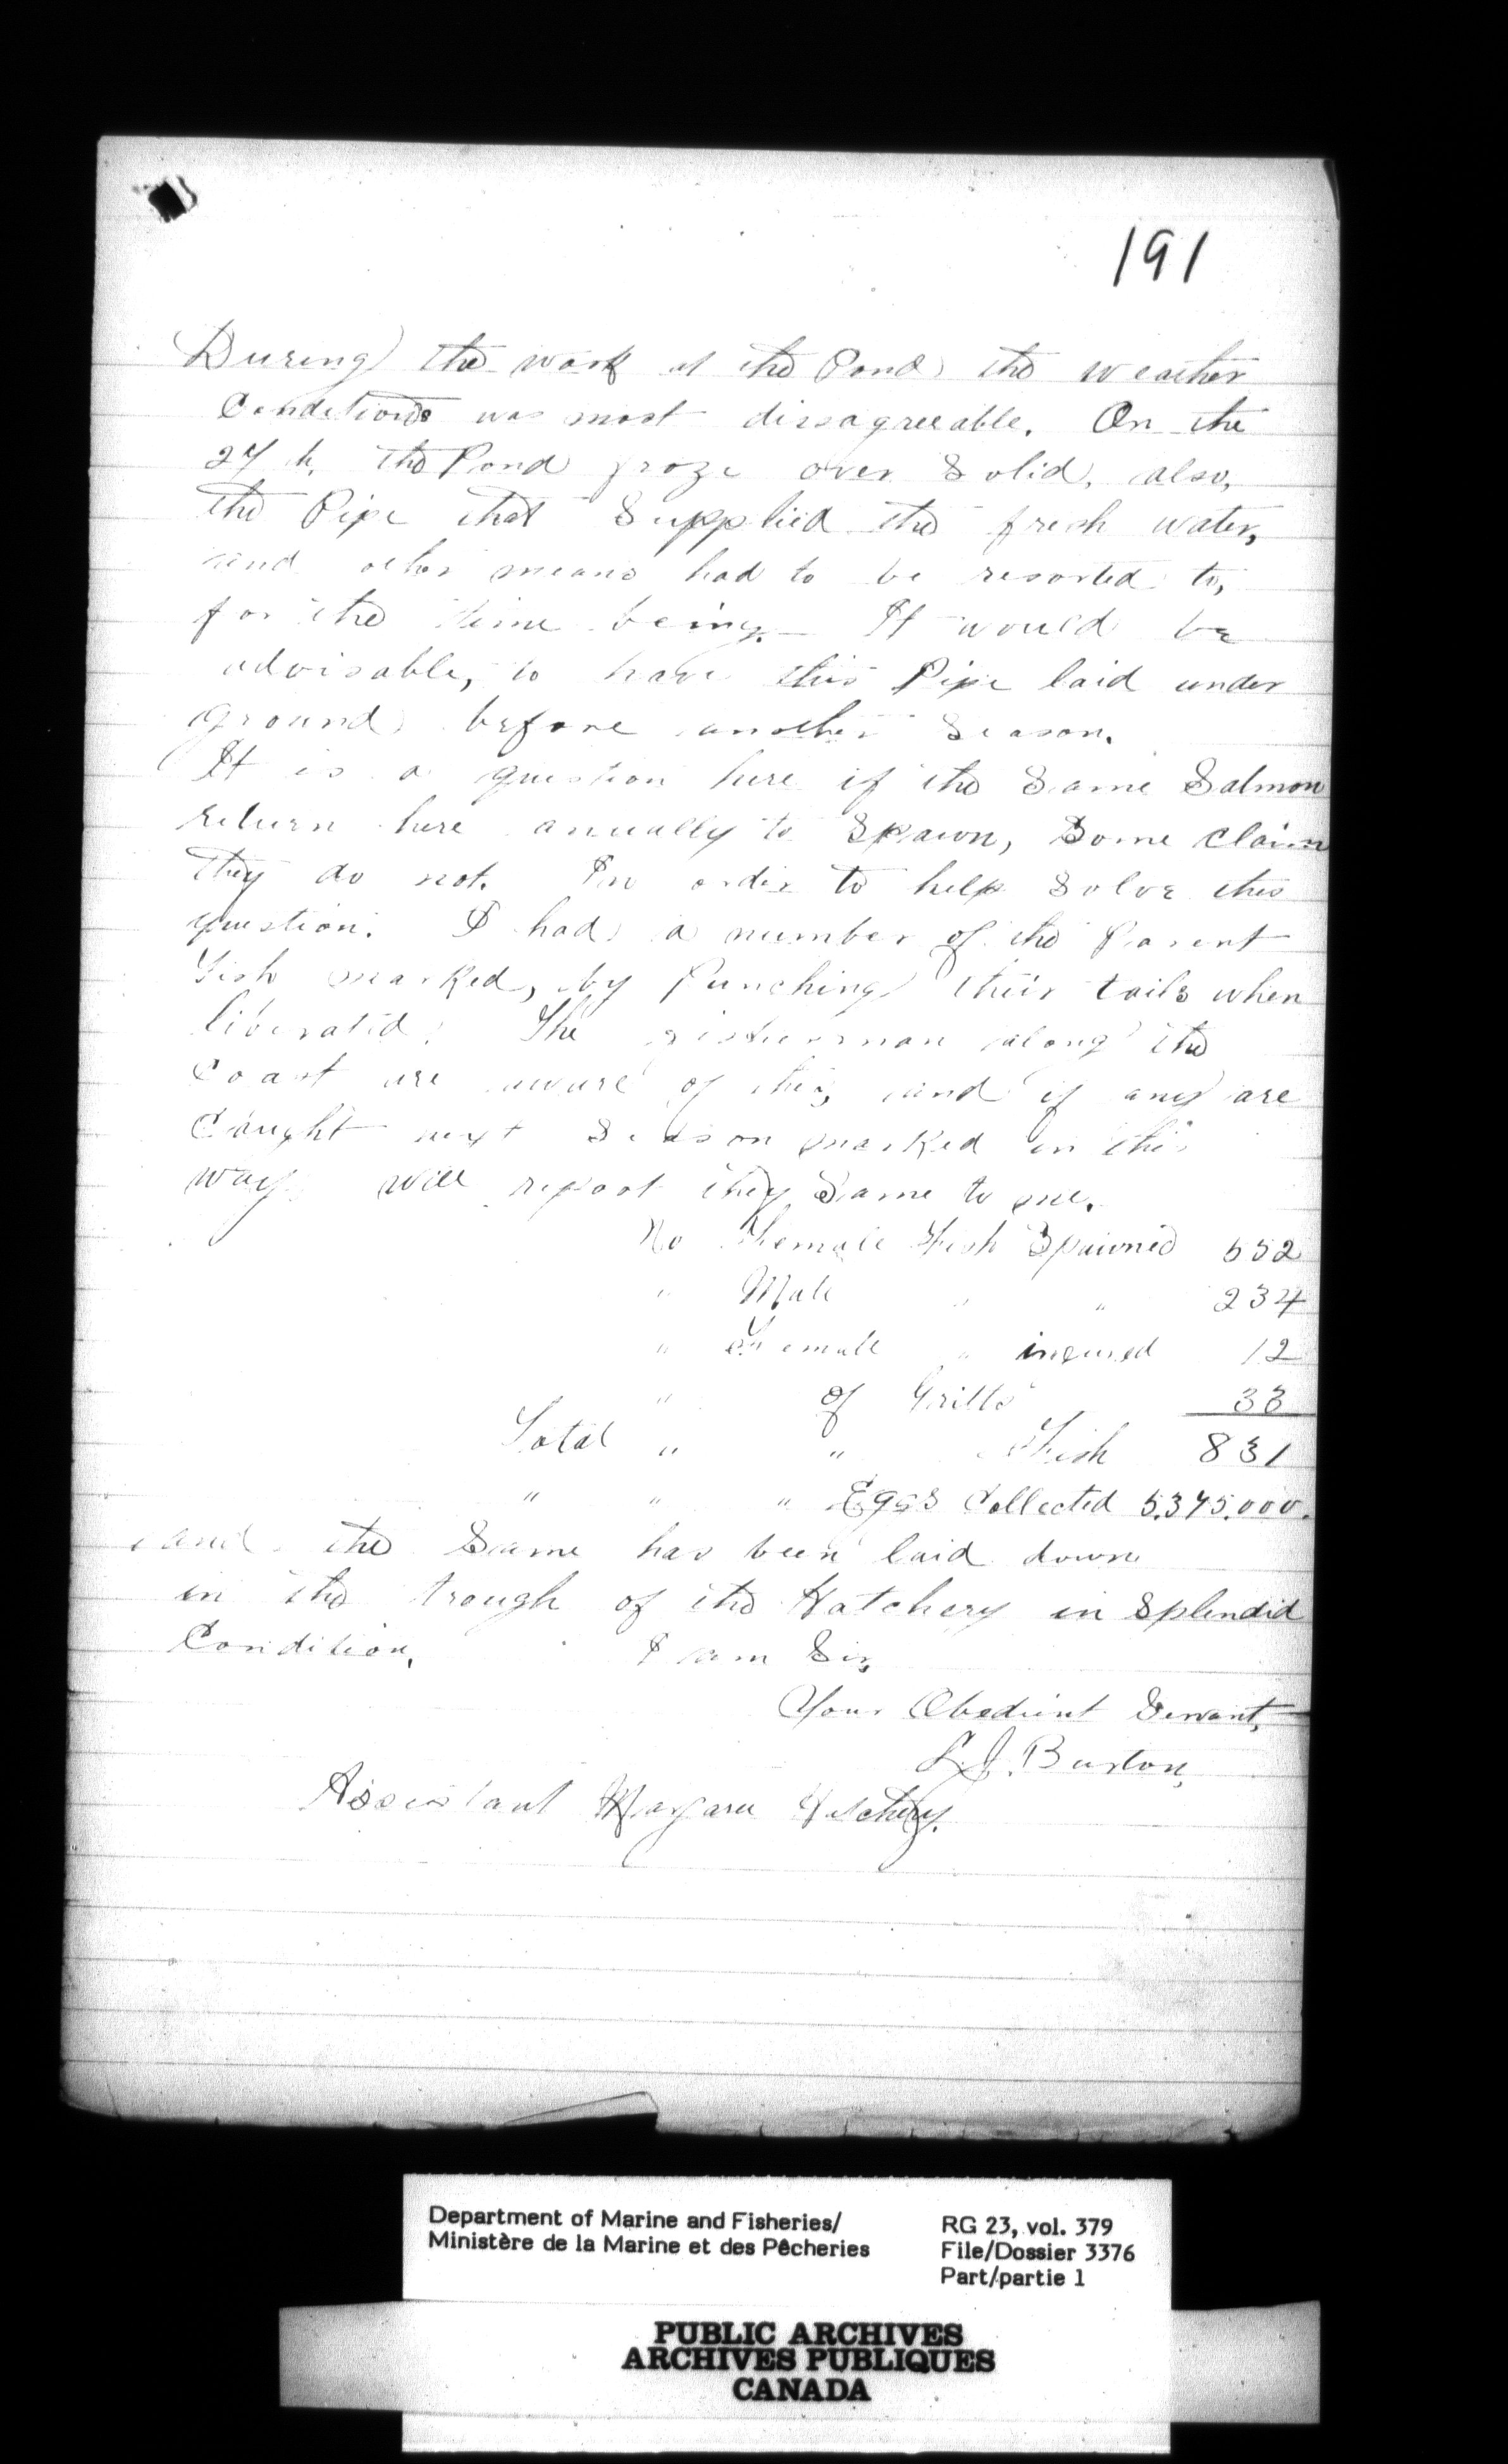 191
During the work at the Pond the weather
Conditions was most dissagreeable. On the
27th. the Pond froze over Solid, also,
the Pipe that Supplied the fresh water,
and other means had to be resorted to,
for the time being. It would be
advisable, to have this Pipe laid under
ground before another Season.
It is a question here if the Same Salmon
return here anually to Spawn, Some claim
they do not. In order to help Solve this
question. I had a number of the Parent
Fish marked, by Punching their tails when
liberated. The fisherman along the
Coast are aware of this, and if any are
Caught next Season marked in this
way will report they Same to me.
No Female Fish Spawned 552
" Male " " 234
" Female " 12
" of Grills 33
Total " " Fish 831
" " " Eggs Collected 5.345.000.
and the Same has been laid down
in the trough of the Hatchery in Splendid
Condition. I am Sir,
Your Obedient Servant,
L.J. Burton,
Assistant Margaree Hatchery.
Department of Marine and Fisheries/
Ministère de la Marine et des Pêcheries
RG 23, vol. 379
File/Dossier 3376
Part/partie 1
PUBLIC ARCHIVES
ARCHIVES PUBLIQUES
CANADA